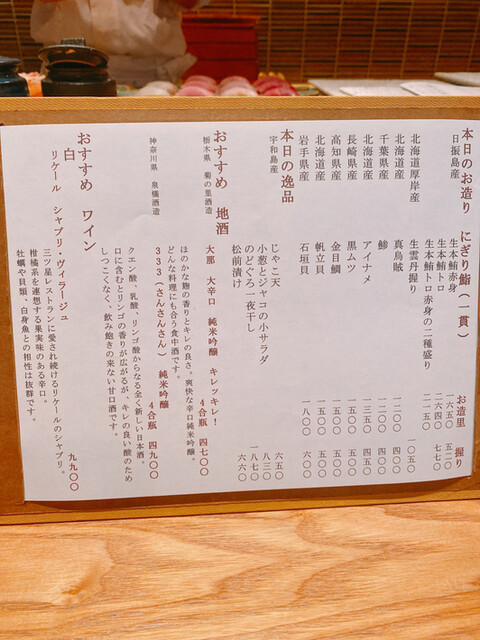 本日のお造り　にぎり鮨（一貫）　お造里　握り
日振島産　生本鮪赤身　一六五〇　五二〇
生本鮪トロ　二六四〇　七七〇
生本鮪トロ赤身の二種盛り　二一五〇
北海道厚岸産　生雲丹握り　一〇五〇
北海道産　真烏賊　一二〇〇　四〇〇
千葉県産　鯵　一二〇〇　四〇〇
北海道産　アイナメ　一三五〇　四五〇
長崎県産　黒ムツ　一五〇〇　五〇〇
高知県産　金目鯛　一五〇〇　五〇〇
北海道産　帆立貝　一五〇〇　五〇〇
岩手県産　石垣貝　一八〇〇　六〇〇
本日の逸品
宇和島産　じゃこ天　六五〇
小葱とジャコの小サラダ　八三〇
のどぐろ一夜干し　一八七〇
松前漬け　六六〇
おすすめ　地酒
栃木県　菊の里酒造　大那　大辛口　純米吟醸　キレッキレ！　４合瓶　四七〇〇
ほのかな麹の香りとキレの良さ。爽快な辛口純米吟醸。
どんな料理にも合う食中酒です。
神奈川県　泉橋酒造　３３３（さんさんさん）　純米吟醸　４合瓶　四九〇〇
クエン酸、乳酸、リンゴ酸からなる全く新しい日本酒。
口に含むとリンゴの香りが広がるが、キレの良い酸のため
しつこくなく、飲み飽きの来ない甘口酒です。
おすすめ　ワイン
白
リケール　シャブリ・ヴィラージュ　九九〇〇
三ツ星レストランに愛され続けるリケールのシャブリ。
柑橘系を連想する果実味のある辛口。
牡蠣や貝類、白身魚との相性は抜群です。